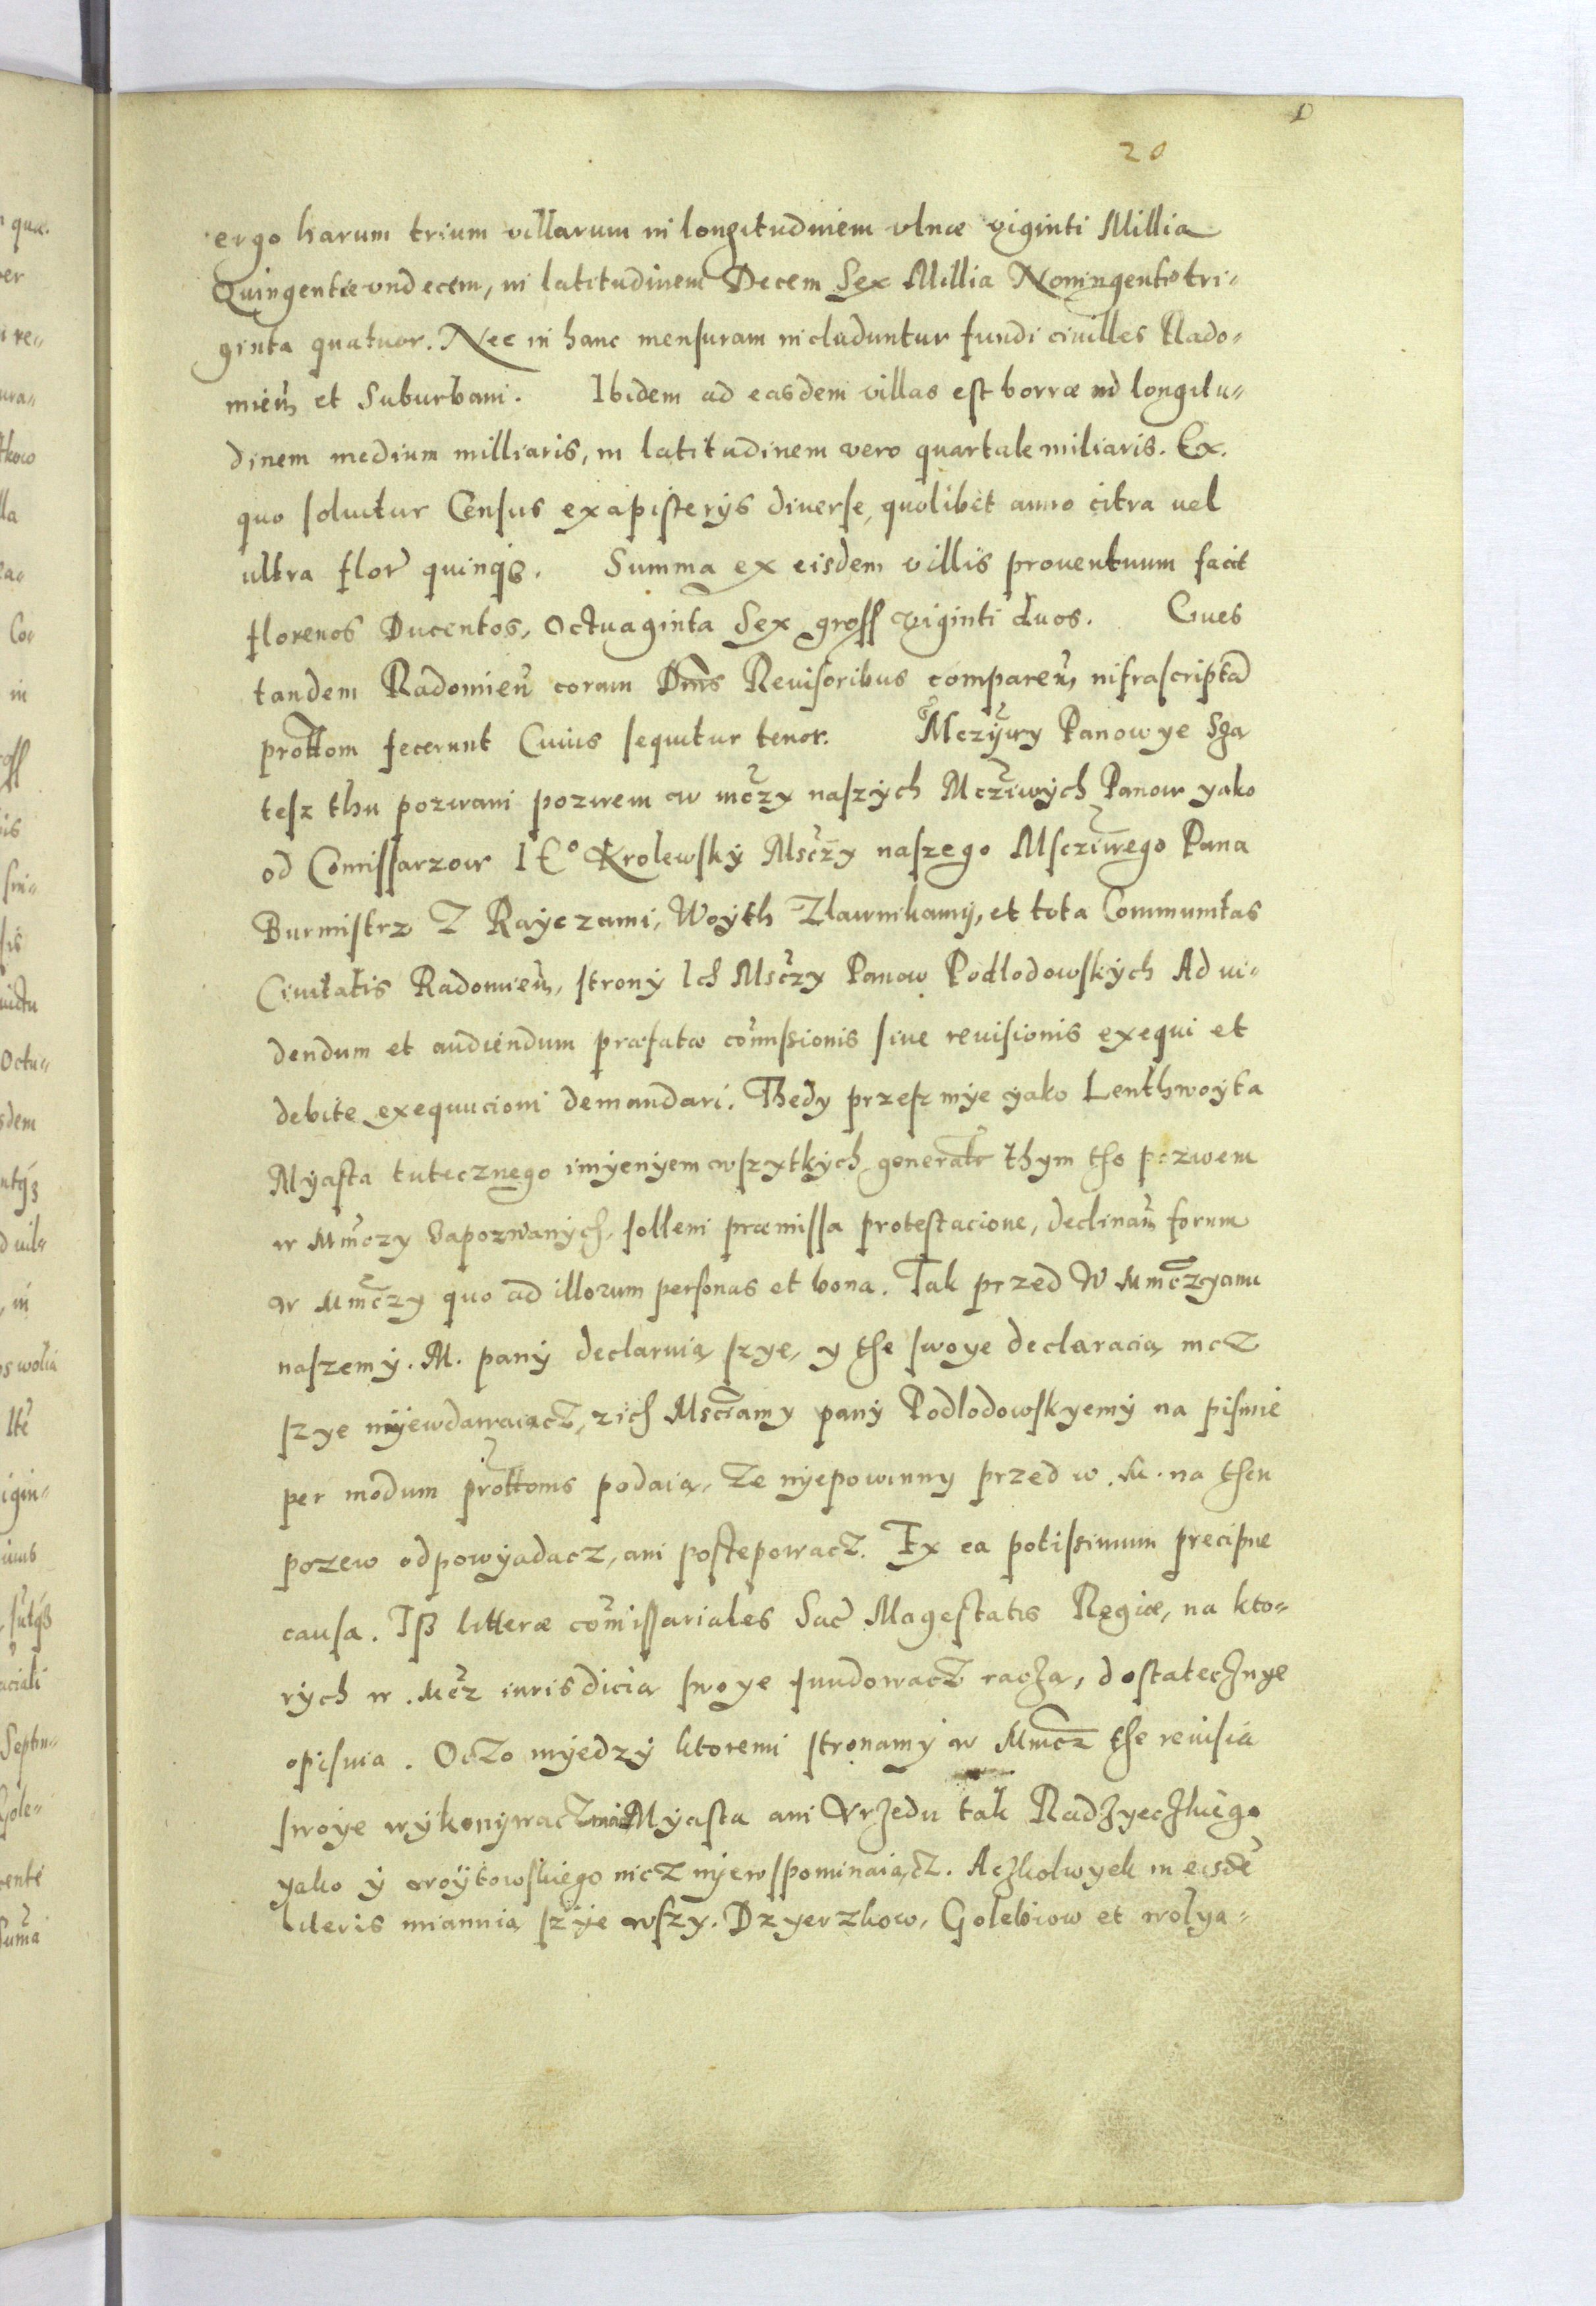 20
ergo harum trium villarum in longitudinem vlnæ viginti Millia
Quingentæ vndecem, in latitudinem Decem Sex Millia Noningentæ tri-
ginta quatuor. Nec in hanc mensuram includuntur fundi ciuilles Rado-
mien̄ et Suburbani. Ibidem ad easdem villas est borræ in longitu-
dinem medium milliaris, in latitudinem vero quartale miliaris. Ex.
quo soluitur Census ex apisterÿs diuerse, quolibet anno citra uel
ultra flor̄ quinqꝫ. Summa ex eisdem villis prouentuum facit
florenos Ducentos, Octuaginta Sex gross viginti duos. Ciues
tandem Radomien̄ coram Dnis Reuisoribus comparen̄, infrascriptā
prottom fecerunt Cuius sequitur tenor. Mczÿwy Panowye Sza
tesz thu pozwani pozwem w mc̄zy naszÿch Mcziwÿch Panow yako
od Comissarzow I Eº Krolewskÿ Msc̄zy naszego Msczīwego Pana
Burmistrz Z Raÿczami, Woÿth Zlawnikamÿ, et tota Communitas
Ciuitatis Radomien̄, stronÿ Ich Msc̄zy Panow Podlodowskÿch Ad ui-
dendum et audiendum præfatæ com̄issionis siue reuisionis exequi et
debite exequucioni demandari. Thedy przesz mÿe yako Lenthwoÿta
Mÿasta tutecznego imÿenÿem wszytkÿch generalr thym tho pozwem
w Mm̄czy Zapozwanÿch, solleni præmissa protestacione, declinan̄ forum
w Mm̄czy quo ad illorum personas et bona. Tak przed W Mmc̄zyamu
naszemÿ. M. panÿ declaruią szye, y the swoye declaracią mcZ
szye nÿewdawaiącZ, z ich Msc̄iamy panÿ Podlodowskyemÿ na pismie
per modum prottoms podaią, Ze nÿepowinny przed w. M. na then
pozew odpowÿadacz, ani postepowacZ. Ex ea potissimum precipue
causa. Iß litteræ com̄issariales Sac̄ Magestatis Regiæ, na kto-
rÿch w. Mc̄z iurisdicią swoye fundowacZ racza, dostatecznye
opisuia. OcZo mÿedzÿ ktoremi stronamÿ w Mmc̄z the reuisia
swoÿe wÿkonÿwacZ Mÿasta ani Vrzedu tak Radzyeczkiego
yako ÿ woÿtowskiego nicZ nÿewspominaiącZ. Aczkolwyek in eisdē
literis mianuią szÿe wszy. Dzyerzkow, Golebiow et wolya-